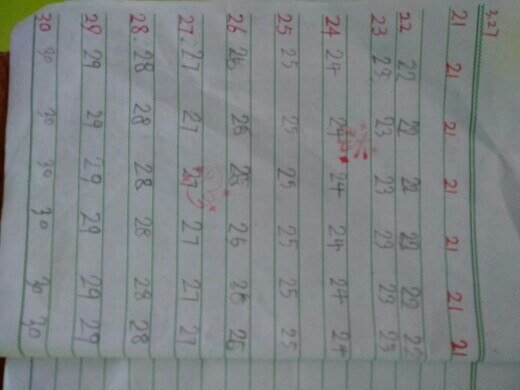 3.27
21 21 21 21 21 21 21
22 22 22 22 22 22 22
23 23 23 23 23 23 23
24 24 24 24 24 24 24
25 25 25 25 25 25 25
26 26 26 26 26 26 26
27.27 27 27 27 27 27
28.28 28 28 28 28 28
29 29 29 29 29 29 29
30 30 30 30 30 30 30